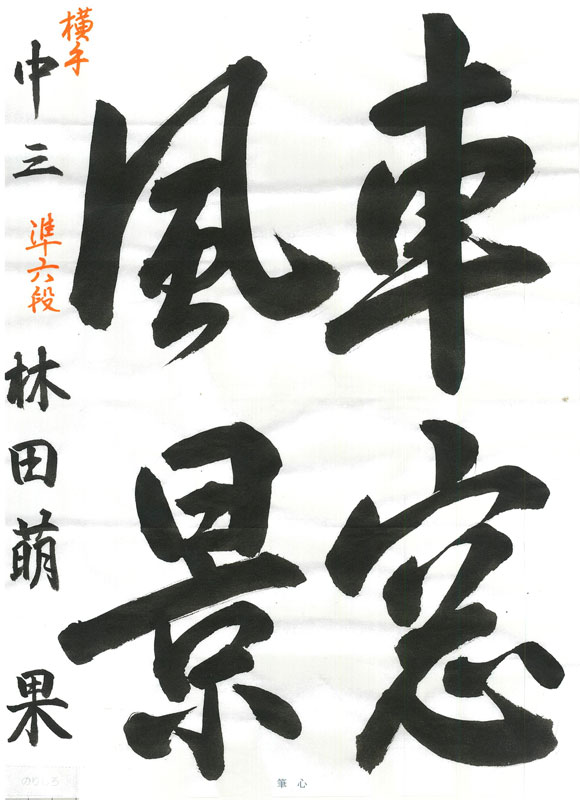 車窓
風景
横手
中三 準六段 林田萌果
のりしろ
筆心